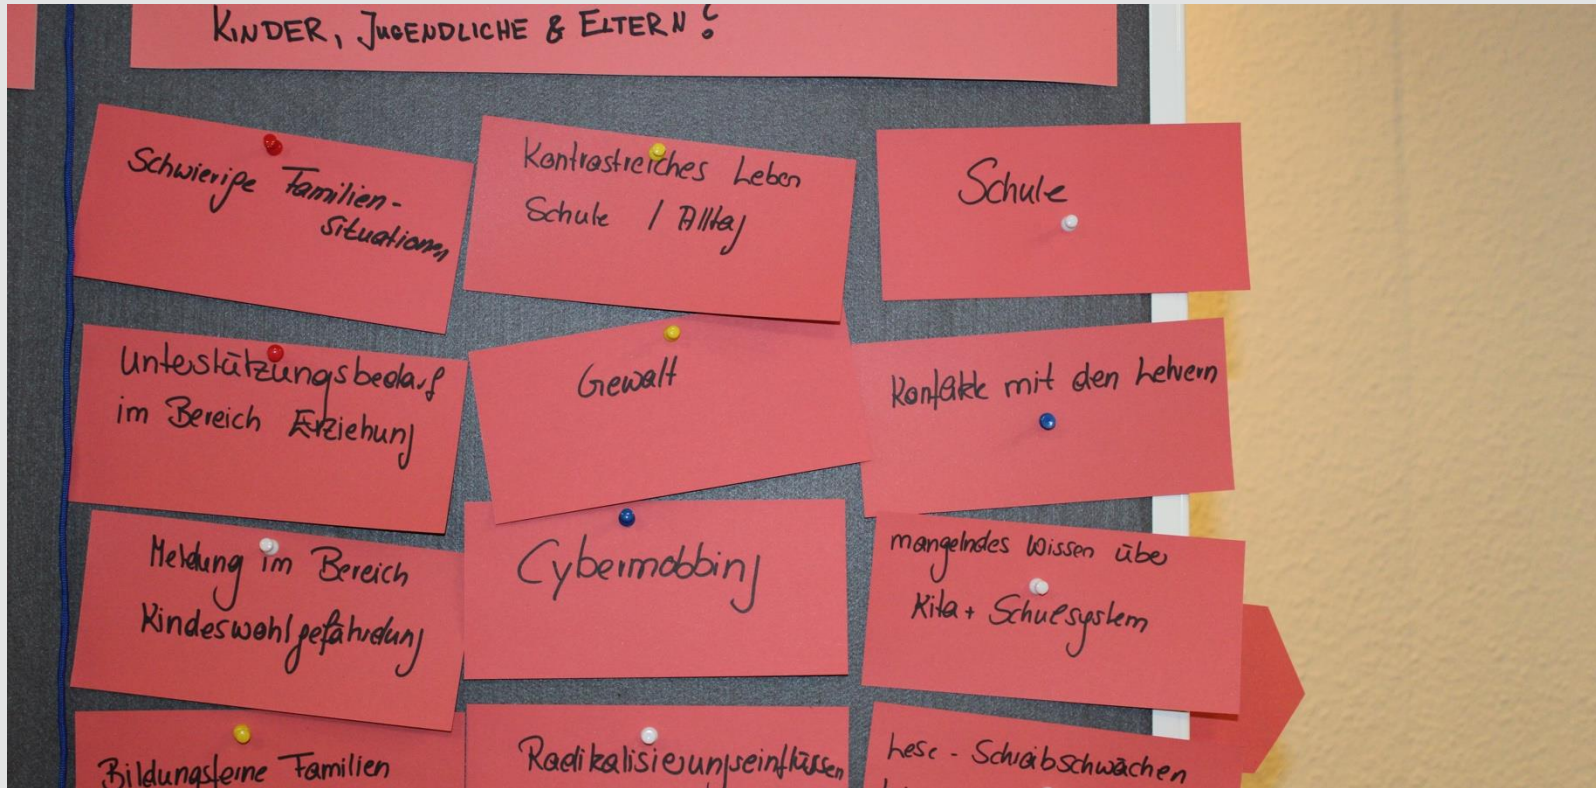 KINDER, JUGENDLICHE & ELTERN?
Schwierige Familien-
situationen
Kontrastreiches Leben
Schule / Alltag
Schule
Unterstützungsbedarf
im Bereich Erziehung
Gewalt
Kontakte mit den Lehrern
Meldung im Bereich
Kindeswohlgefährdung
Cybermobbing
mangelndes Wissen über
Kita + Schulsystem
Bildungsferne Familien
Radikalisierungseinflüssen
Lese - Schreibschwächen